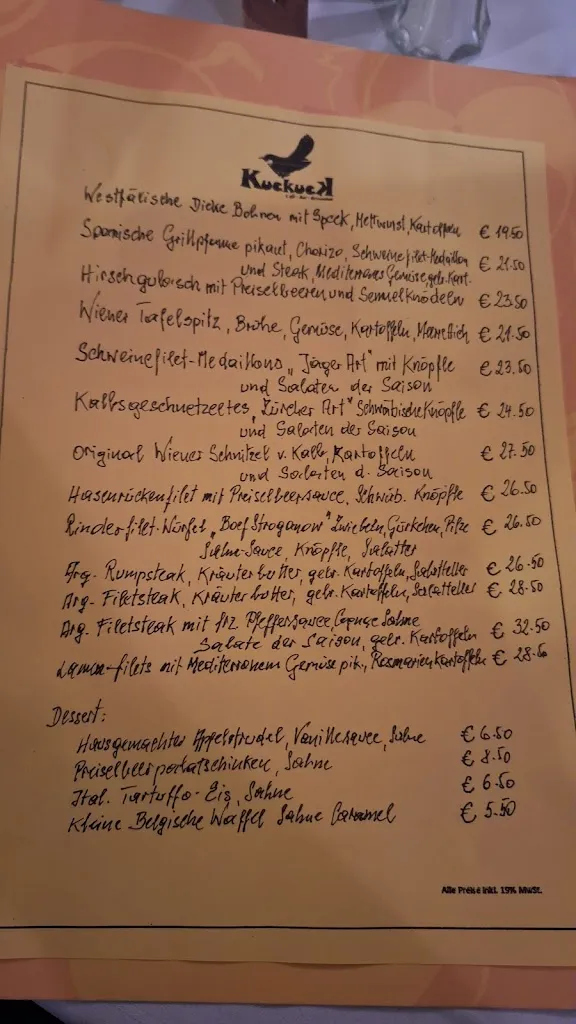 Kuckuck
Westfälische Dicke Bohnen mit Speck, Mettwurst, Kartoffeln € 19.50
Spanische Grillpfanne pikant, Chorizo, Schweinefilet-Medaillon
und Steak, Mediterranes Gemüse, gebr. Kart. € 21.50
Hirschgulasch mit Preiselbeeren und Semmelknödeln € 23.50
Wiener Tafelspitz, Brühe, Gemüse, Kartoffeln, Meerettich € 21.50
Schweinefilet-Medaillons „Jäger Art" mit Knöpfle € 23.50
und Salaten der Saison
Kalbsgeschnetzeltes „Zürcher Art" Schwäbische Knöpfle € 24.50
und Salaten der Saison
Original Wiener Schnitzel v. Kalb, Kartoffeln € 27.50
und Salaten d. Saison
Hasenrückenfilet mit Preiselbeersauce, Schwäb. Knöpfle € 26.50
Rinderfilet-Würfel „Boef Stroganow" Zwiebeln, Gürkchen, Pilze € 26.50
Sahne-Sauce, Knöpfle, Salatteller
Arg. Rumpsteak, Kräuterbutter, gebr. Kartoffeln, Salatteller € 26.50
Arg. Filetsteak, Kräuterbutter, gebr. Kartoffeln, Salatteller € 28.50
Arg. Filetsteak mit frz Pfeffersauce, Sahne
Salate der Saison, gebr. Kartoffeln € 32.50
Lamm-filets mit Mediterranem Gemüse pik., Rosmarienkartoffeln €
Dessert:
Hausgemachter Apfelstrudel, Vanillesauce, Sahne € 6.50
Sahne € 8.50
Ital. Tartuffo-Eis, Sahne € 6.50
Kleine Belgische Waffel Sahne Caramel € 5.50
Alle Preise inkl. 19% MwSt.